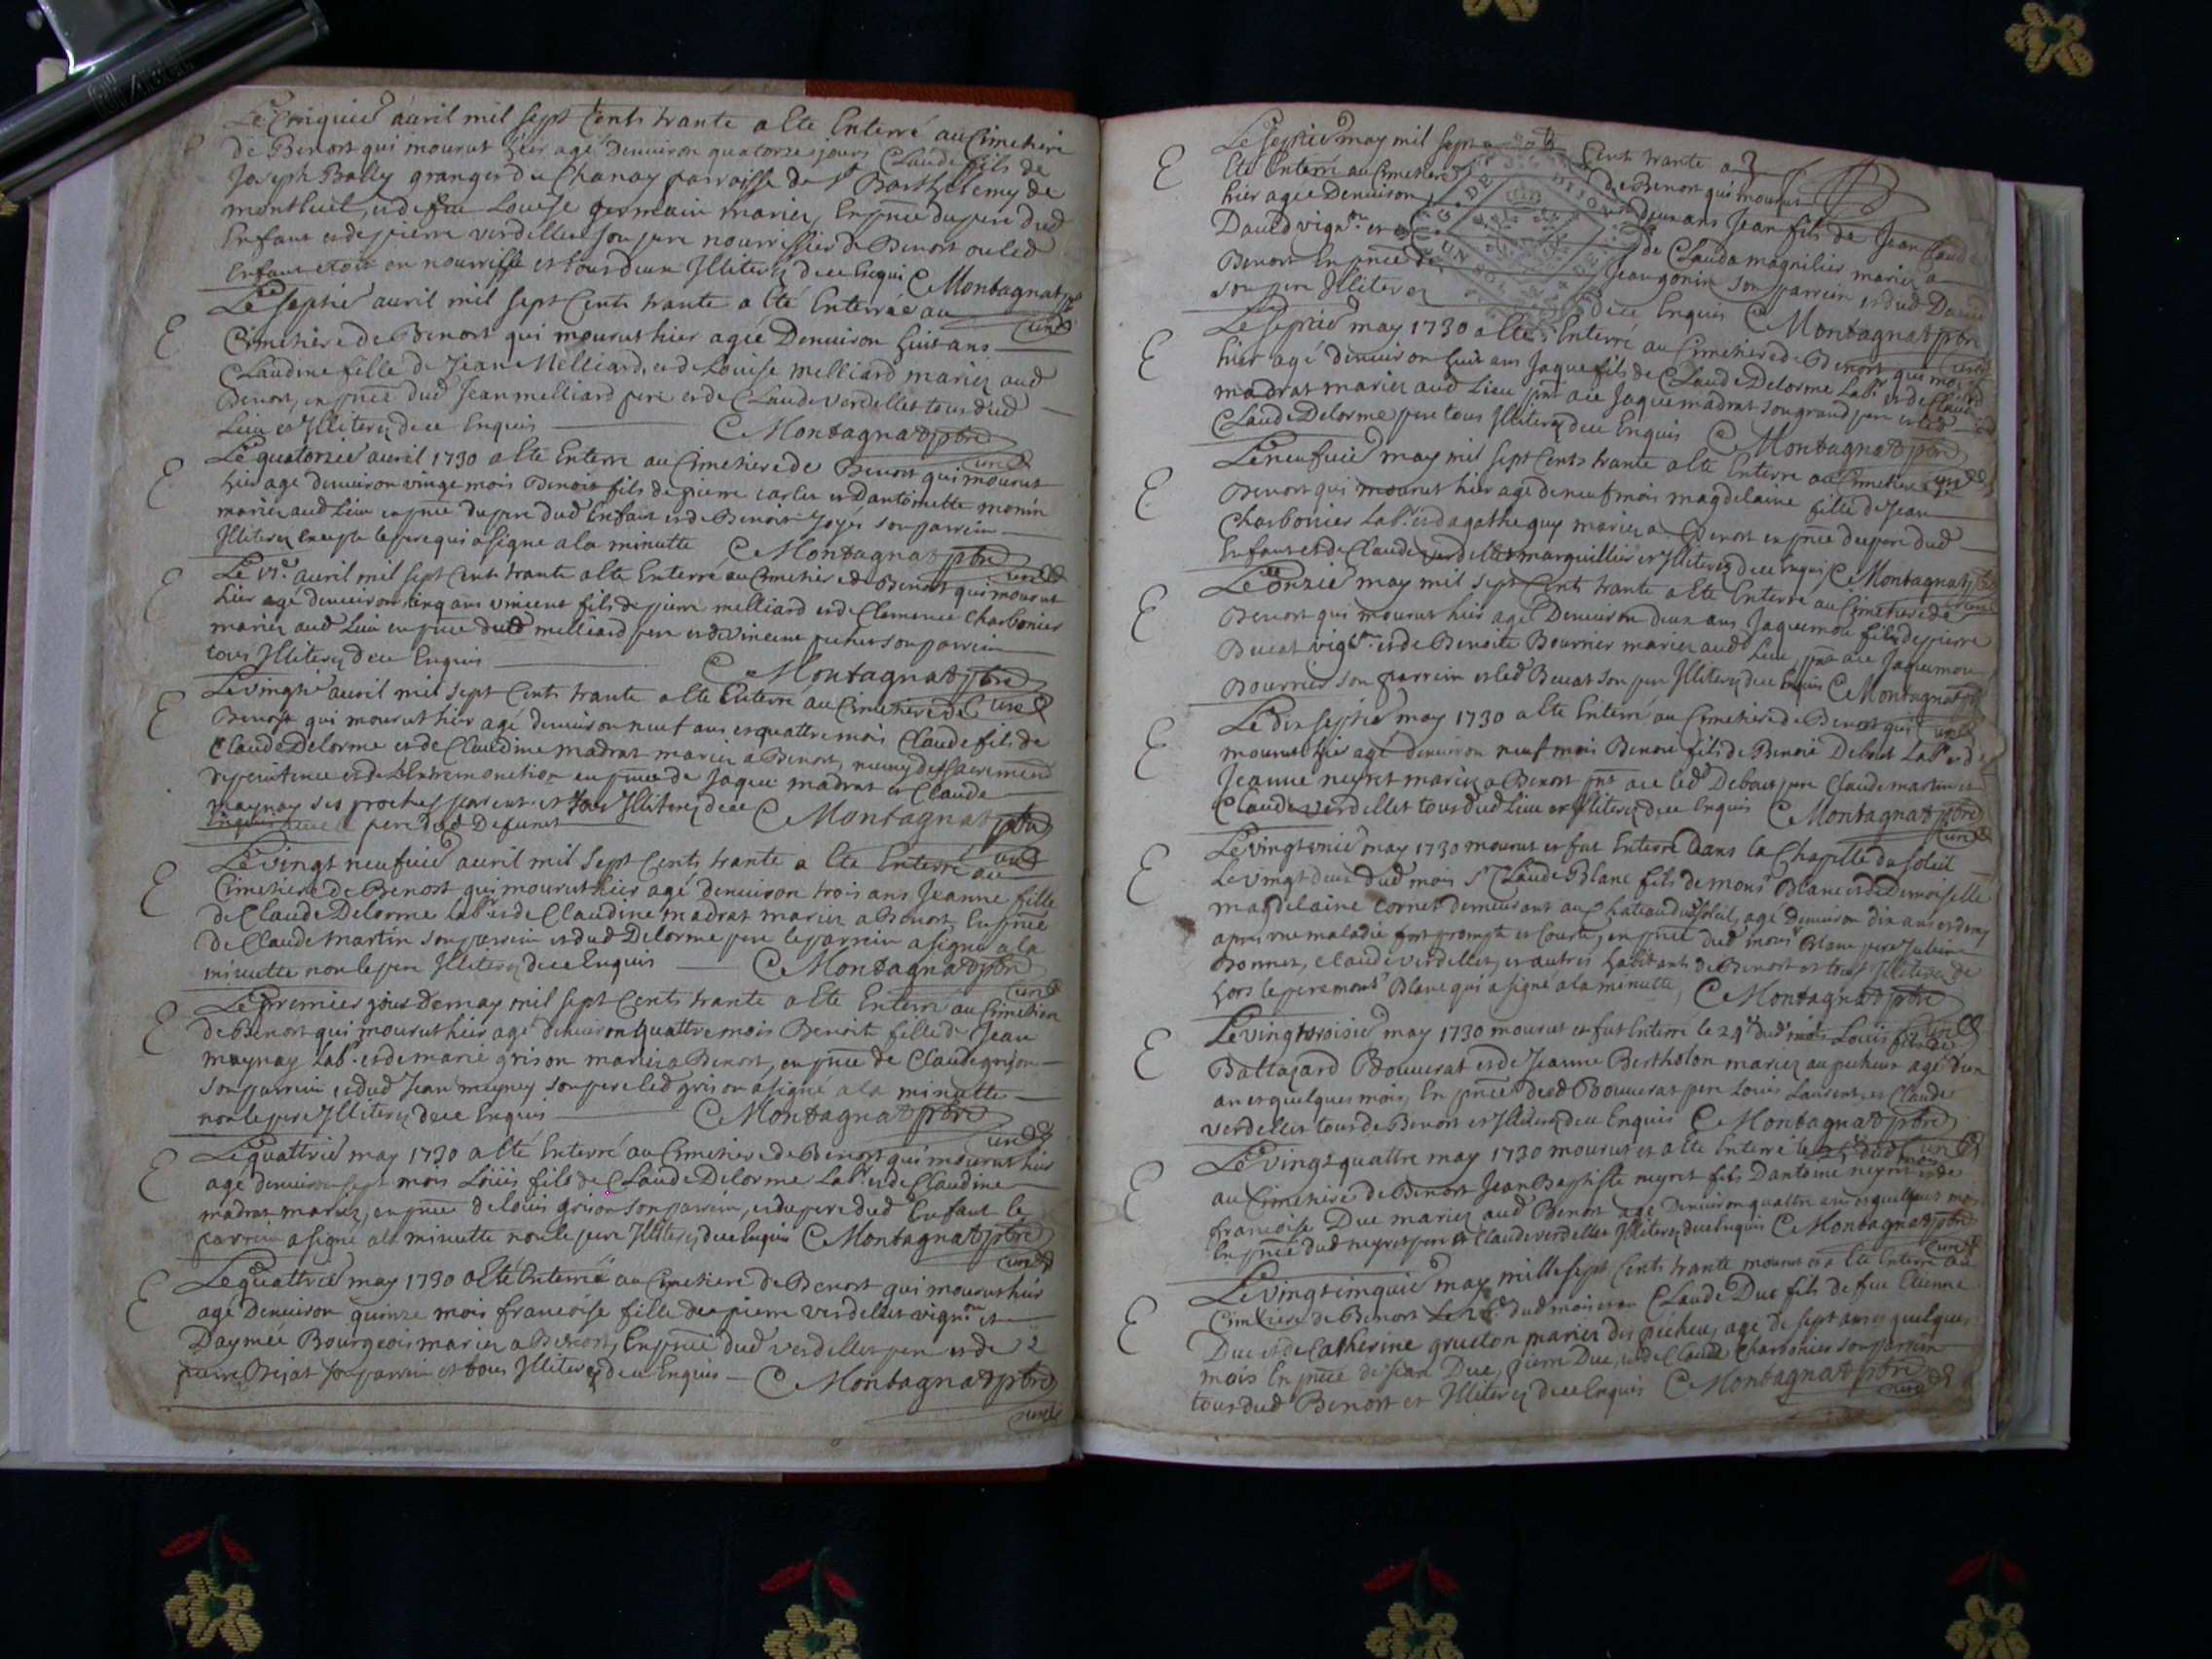 Le cinquie avril mil sept Cents trante a Ete Enterré au Cimetiere
de Benost qui mourut hier agé Denuiron quatorze jours Claude fils de
Joseph Bally granger du Chanay parroisse de St Barthelemy de
montluel, et de feu Louise germain mariez, En pnce du pere dud
Enfant et de pierre verdellet son pere nourrissier de Benost ou led
Enfant etoit en nourisse et tous deux Illiterez de ce Enquis CMontagnat ptre
curé
Le septie avril mil sept Cents trante a Eté Enterrée au
Cimetiere de Benost qui mourut hier agée Denuiron huit ans
Claudine fille de Jean Melliard, et de Louise melliard mariez aud
Benost, en pnce dud Jean melliard pere et de Claude verdellet tous dud
Lieu et Illiterez de ce Enquis CMontagnat ptre
curé
Le quatorzie avril 1730 a Ete Enterre au Cimetiere de Benost qui mourut
hier agé denuiron vingt mois Benoit fils de pierre carlet et Dantoinette monin
mariez aud Lieu en pnce du pere dud Enfant et de Benoit Joyés son parrein
Illiterez Excepte le pere qui a signe a la minutte CMontagnat ptre
curé
Le 17e. avril mil sept Cents trante a Ete Enterré au Cimetiere de Benost qui mourut
hier agé denuiron cinq ans vincent fils de pierre melliard et de Clemence Charbonier
mariez aud Lieu en pnce dud melliard pere et de vincent pecher son parrein
tous Illiterez de ce Enquis CMontagnat ptre
curé
Le vingtie avril mil sept Cents trante a Ete Enterré au Cimetiere de
Benost qui mourut hier agé denuiron neuf ans et quattre mois Claude fils de
Claude Delorme et de Claudine madrat mariez a Benost, muny des sacrements
de penitence et de L'Extremonction en pnce de Jaque madrat et Claude
maynay ses proches parents et tous Illiterez de ce CMontagnat ptre
Enquis pere dud Defunct
curé
Le vingt neufuie avril mil sept Cents trante a Ete Enterré au
Cimetiere de Benost qui mourut hier agé denuiron trois ans Jeanne fille
de Claude Delorme Labr et de Claudine madrat mariez a Benost, En pnce
de Claude martin son parrein et dud Delorme pere le parrein a signé a la
minutte non le pere Illiterez de ce Enquis CMontagnat ptre
curé
Le premier jour de may mil sept Cents trante a Ete Enterré au Cimetiere
de Benost qui mourut hier agé denuiron quattre mois Benoit fille de Jean
maynay Labr. et de marie grison mariez a Benost, en pnce de Claude grison
son parrein et dud Jean meyney son pere led grison a signé a la minutte
non le pere Illiterez de ce Enquis CMontagnat ptre
curé
Le quattrie may 1730 a Eté Enterré au Cimetiere de Benost qui mourut hier
agé denuiron sept mois Loüis fils de Claude Delorme Labr. et de Claudine
madrat mariez, en pnce de Louis grison son parrein, et du pere dud Enfant le
parrein a signe a la minutte non le pere Illiterez de ce Enquis CMontagnat ptre
curé
Le quattrie may 1730 a Eté Enterrée au Cimetiere de Benost qui mourut hier
agé Denuiron quinze mois francoise fille de pierre verdellet vignon et
Daymée Bourgeois mariez a Benost, En pnce dud verdellet pere et de
pierre Bejat son parrein et tous Illiterez de ce Enquis CMontagnat ptre
curé
Le septie may mil sept Cents trante a
Ete Enterré au Cimetiere de Benost qui mourut
hier agée Denuiron deux ans Jean fils de Jean Claude
Dauid vignon. et de Clauda magnilier mariez a
Benost En pnce de Jean gonin son parrein et dud Dauid
son pere Illiterez de ce Enquis CMontagnat ptre
curé
Le septie may 1730 a Ete Enterré au Cimetiere de Benost qui mourut
hier agé denuiron huit ans Jaque fils de Claude Delorme Labr. et de Claud
madrat mariez aud Lieu pnt ace Jaque madrat son grand pere et led
Claude Delorme pere tous Illiterez de ce Enquis CMontagnat ptre
curé
Le neufuie may mil sept Cents trante a Ete Enterre au Cimetiere de
Benost qui mourut hier agé de neuf mois magdelaine fille de Jean
Charbonier Labr. et dagathe guy mariez a Benost en pnce du pere dud
Enfant et de Claude verdellet marguillier et Illiterez de ce Enquis CMontagnat ptre
curé
Le onzie may mil sept Cents trante a Ete Enterré au Cimetiere de
Benost qui mourut hier agé Denuiron deux ans Jaquemou fils de pierre
Bucat vignon. et de Benoite Bournier mariez aud Lieu, pnt ace Jaquemou
Bournier son parrein et led Bucat son pere Illiterez de ce Enquis CMontagnat ptre
curé
Le dix septie may 1730 a Ete Enterré au Cimetiere de Benost qui
mourut hier agé denuiron neuf mois Benoit fils de Benoit Debost Labr. et de
Jeanne neyret mariez a Benost pnt ace led Debost pere Claude martin et
Claude verdellet tous dud Lieu et Illiterez de ce Enquis CMontagnat ptre
curé
Le vingt unie may 1730 mourut et fut Enterré Dans la Chapelle du soleil
Le vingt deux dud mois Sr Claude Blanc fils de monsr Blanc et de Demoiselle
magdelaine cornet demeurant au Chateau du soleil, agé Denuiron dix ans et demy
apres une maladie fort prompte et Courte, en pnce dud monsr Blanc pere Julien
Bonnet, claude verdellet, et autres habitants de Benost et tous Illiterez de
hors le pere monsr Blanc qui a signé a la minutte, CMontagnat ptre
curé
Le vingt troisie may 1730 mourut et fut Enterré le 24e dud mois Louis fils de
Baltazard Bouuerat et de Jeanne Bertholon mariez au pecheur agé d'un
an et quelques mois, En pnce dud Bouuerat pere Louis Laurent, et Claude
verdellet tous de Benost et Illiterez de ce Enquis CMontagnat ptre
curé
Le vingt quattre may 1730 mourut et a Ete Enterré le 25e dud mois
au Cimetiere de Benost Jean Baptiste neyret fils Dantoine neyret et de
francoise Duc mariez aud Benost agé Denuiron quattre ans et quelques mois
En pnce dud neyret pere et Claude verdellet Illiterez de ce Enquis CMontagnat ptre
curé
Le vingt cinquie may mille sept Cents trante mourut et a Ete Enterré au
Cimetiere de Benost Le 26e dud mois et an Claude Duc fils de feu Etienne
Duc et de Catherine grueton mariez des pecheur, agé de sept ans et quelques
mois En pnce de Jean Duc, pierre Duc, et de Claude Charbonier son parrein
tous dud Benost et Illiterez de ce Enquis CMontagnat ptre
curé